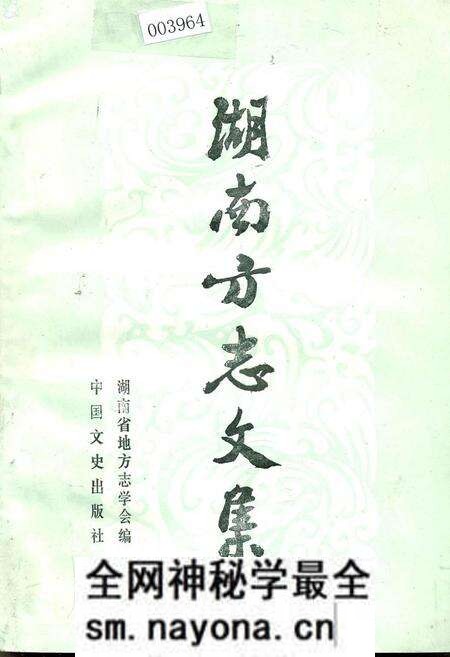 003964
湖南方志文集
湖南省地方志学会编
中国文史出版社
全网神秘学最全
sm.nayona.cn